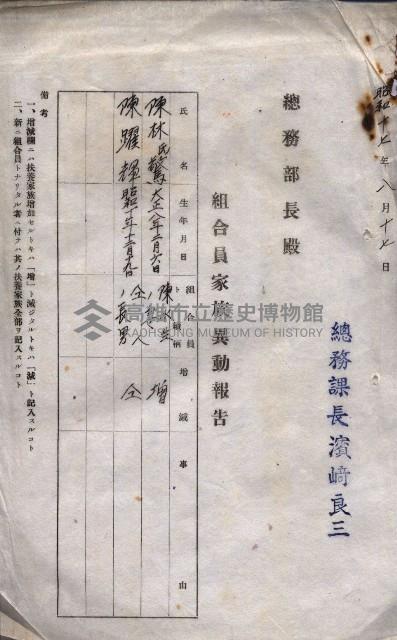 昭和十七年八月十七日
總務部長殿
總務課長濱﨑良三
組合員家族異動報告
氏名
生年月日
組合員トノ續柄
增減
事由
陳林氏鶯
大正八年二月六日
增
陳躍輝
昭和
年十二月十九日
仝人ノ長男
仝
備考
一、增減欄ニハ扶養家族增加セルトキハ「增」ト減ジタルトキハ「減」ト記入スルコト
二、新ニ組合員トナリタル者ニ付テハ其ノ扶養家族全部ヲ記入スルコト
高雄市立歷史博物館
KAOHSIUNG MUSEUM OF HISTORY